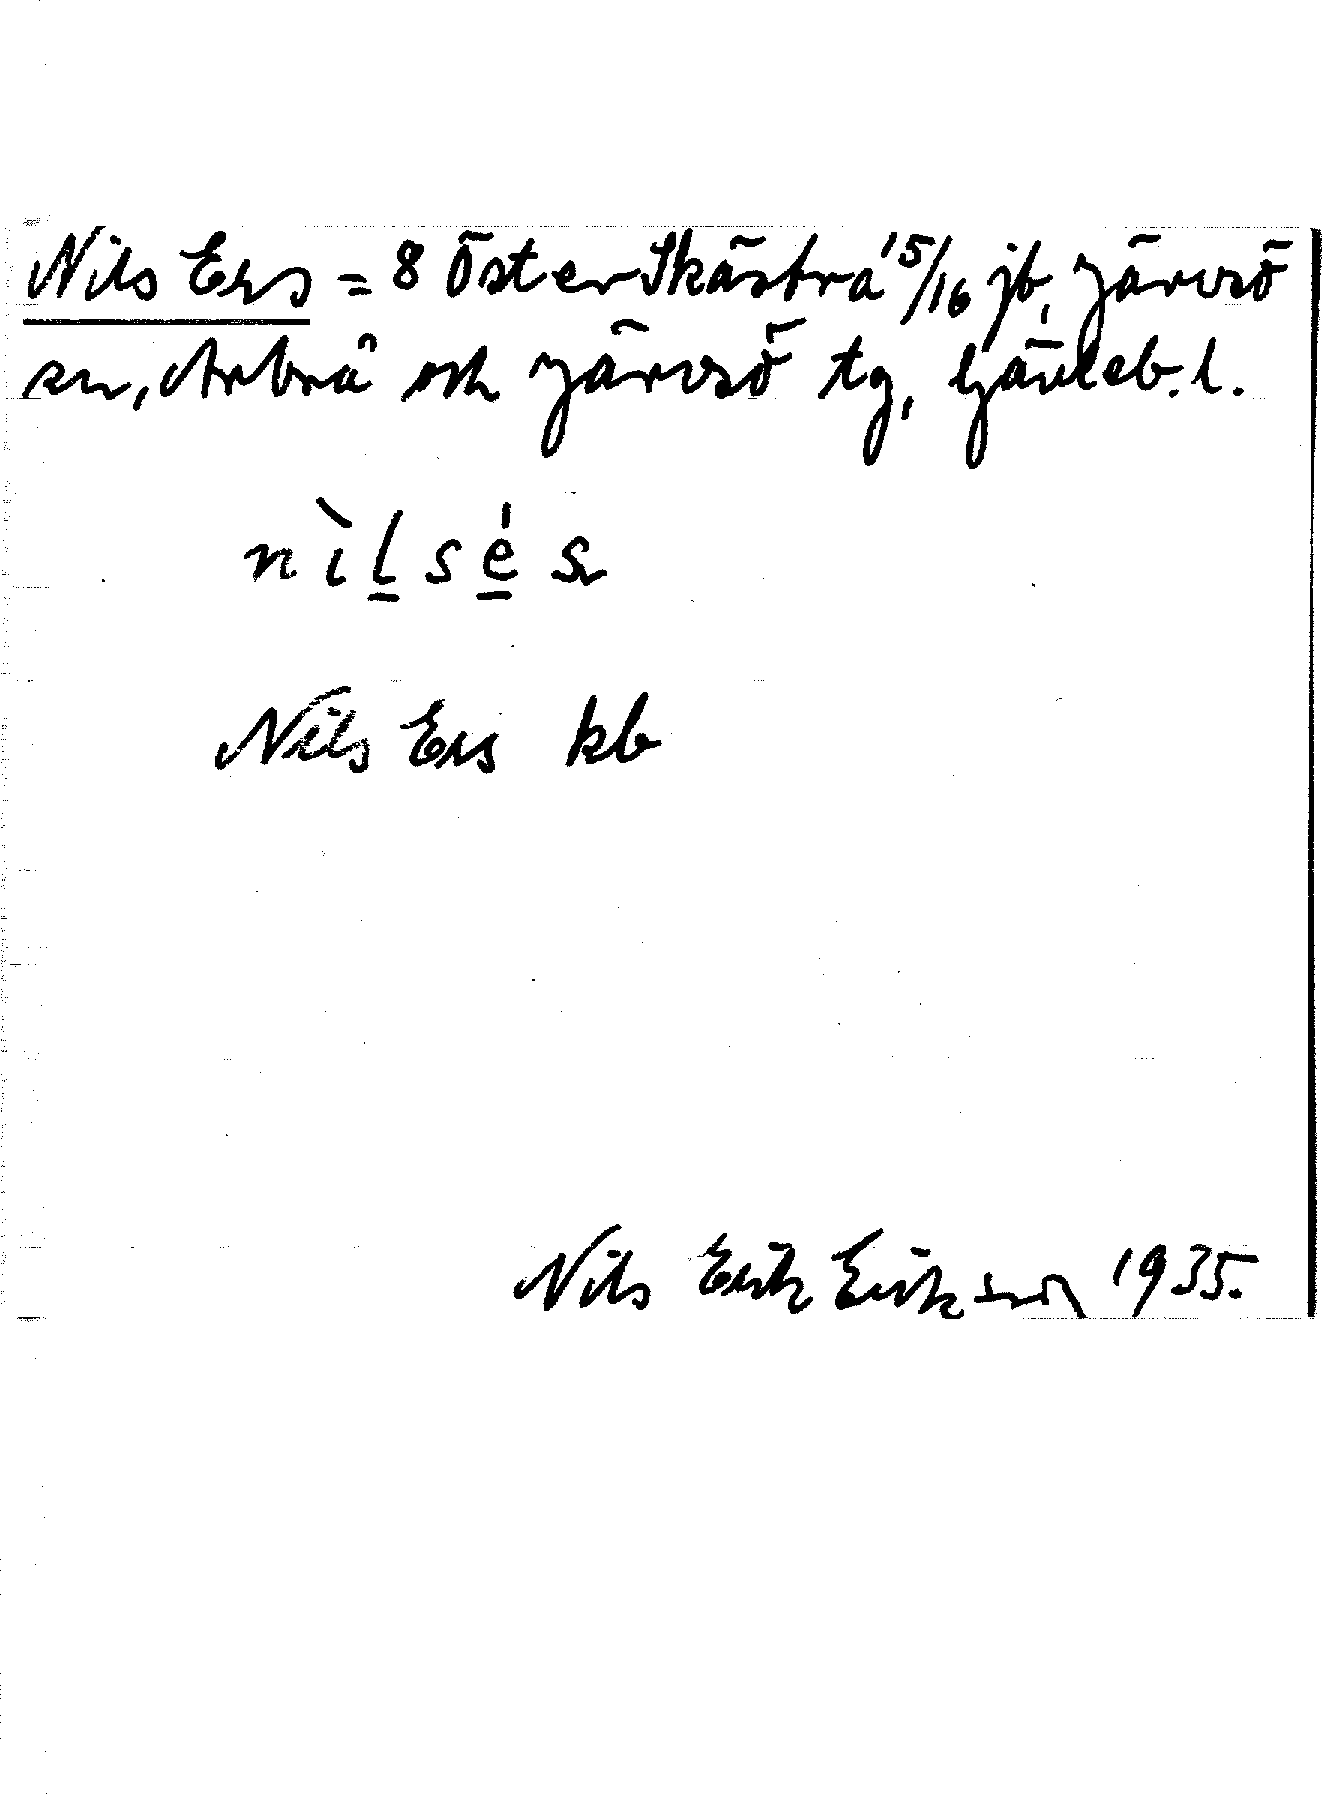 Nils Ers = 8 Öster Skästra 15/16 jb, Järvsö
sn, Arbrå och Järvsö tg, Gävleb. l.
nìl̲sé̲s
Nils Ers kb
Nils Erik Eriksson 1935.